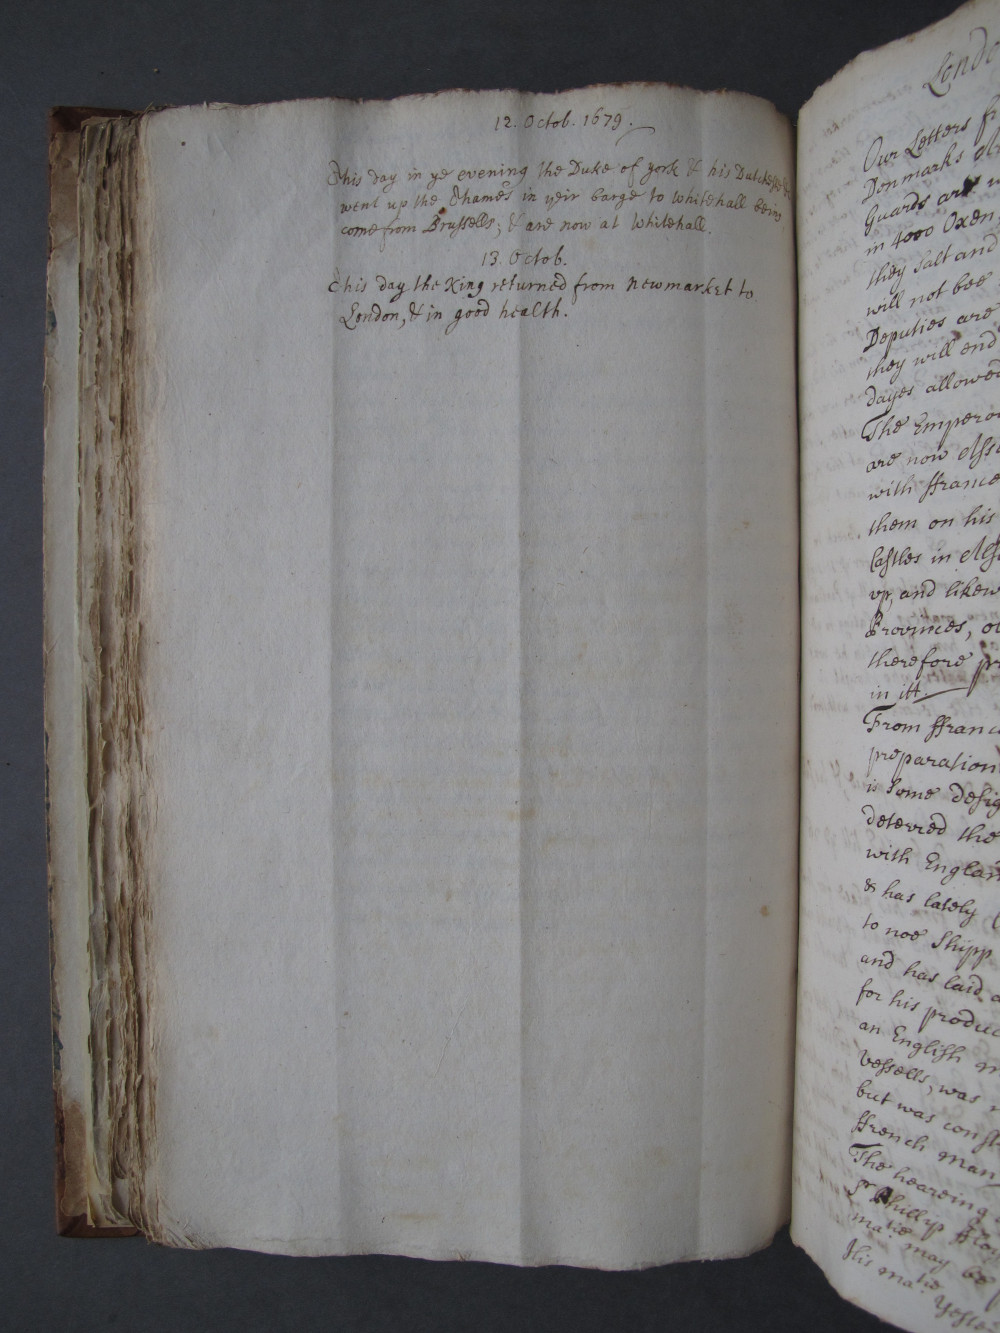 12. Octob. 1679.
This day in ye evening the Duke of york & his Dutchesse
went up the Thames in yeir barge to whitehall being
come from Brussells; & are now at Whitehall.
13. Octob.
This day the King returned from newmarket to
London, & in good health.
Our Letters
Denmarks
Guards are
in 4000 Oxen,
they salt and
will not bee
Deputies are
they will end
dayes allowed
The Emperor
are now
with ffrance
them on his
Castles in
up, and likew
Provinces, o
therefore pr
in itt
From ffranc
preparation
is some desig
deterred the
with Englan
& has lately
to noe Shipp
and has laid
for his produc
an English m
vessells, was
but was const
ffrench man
The heareing
Sr Phillip
matie may be
His matie Yester